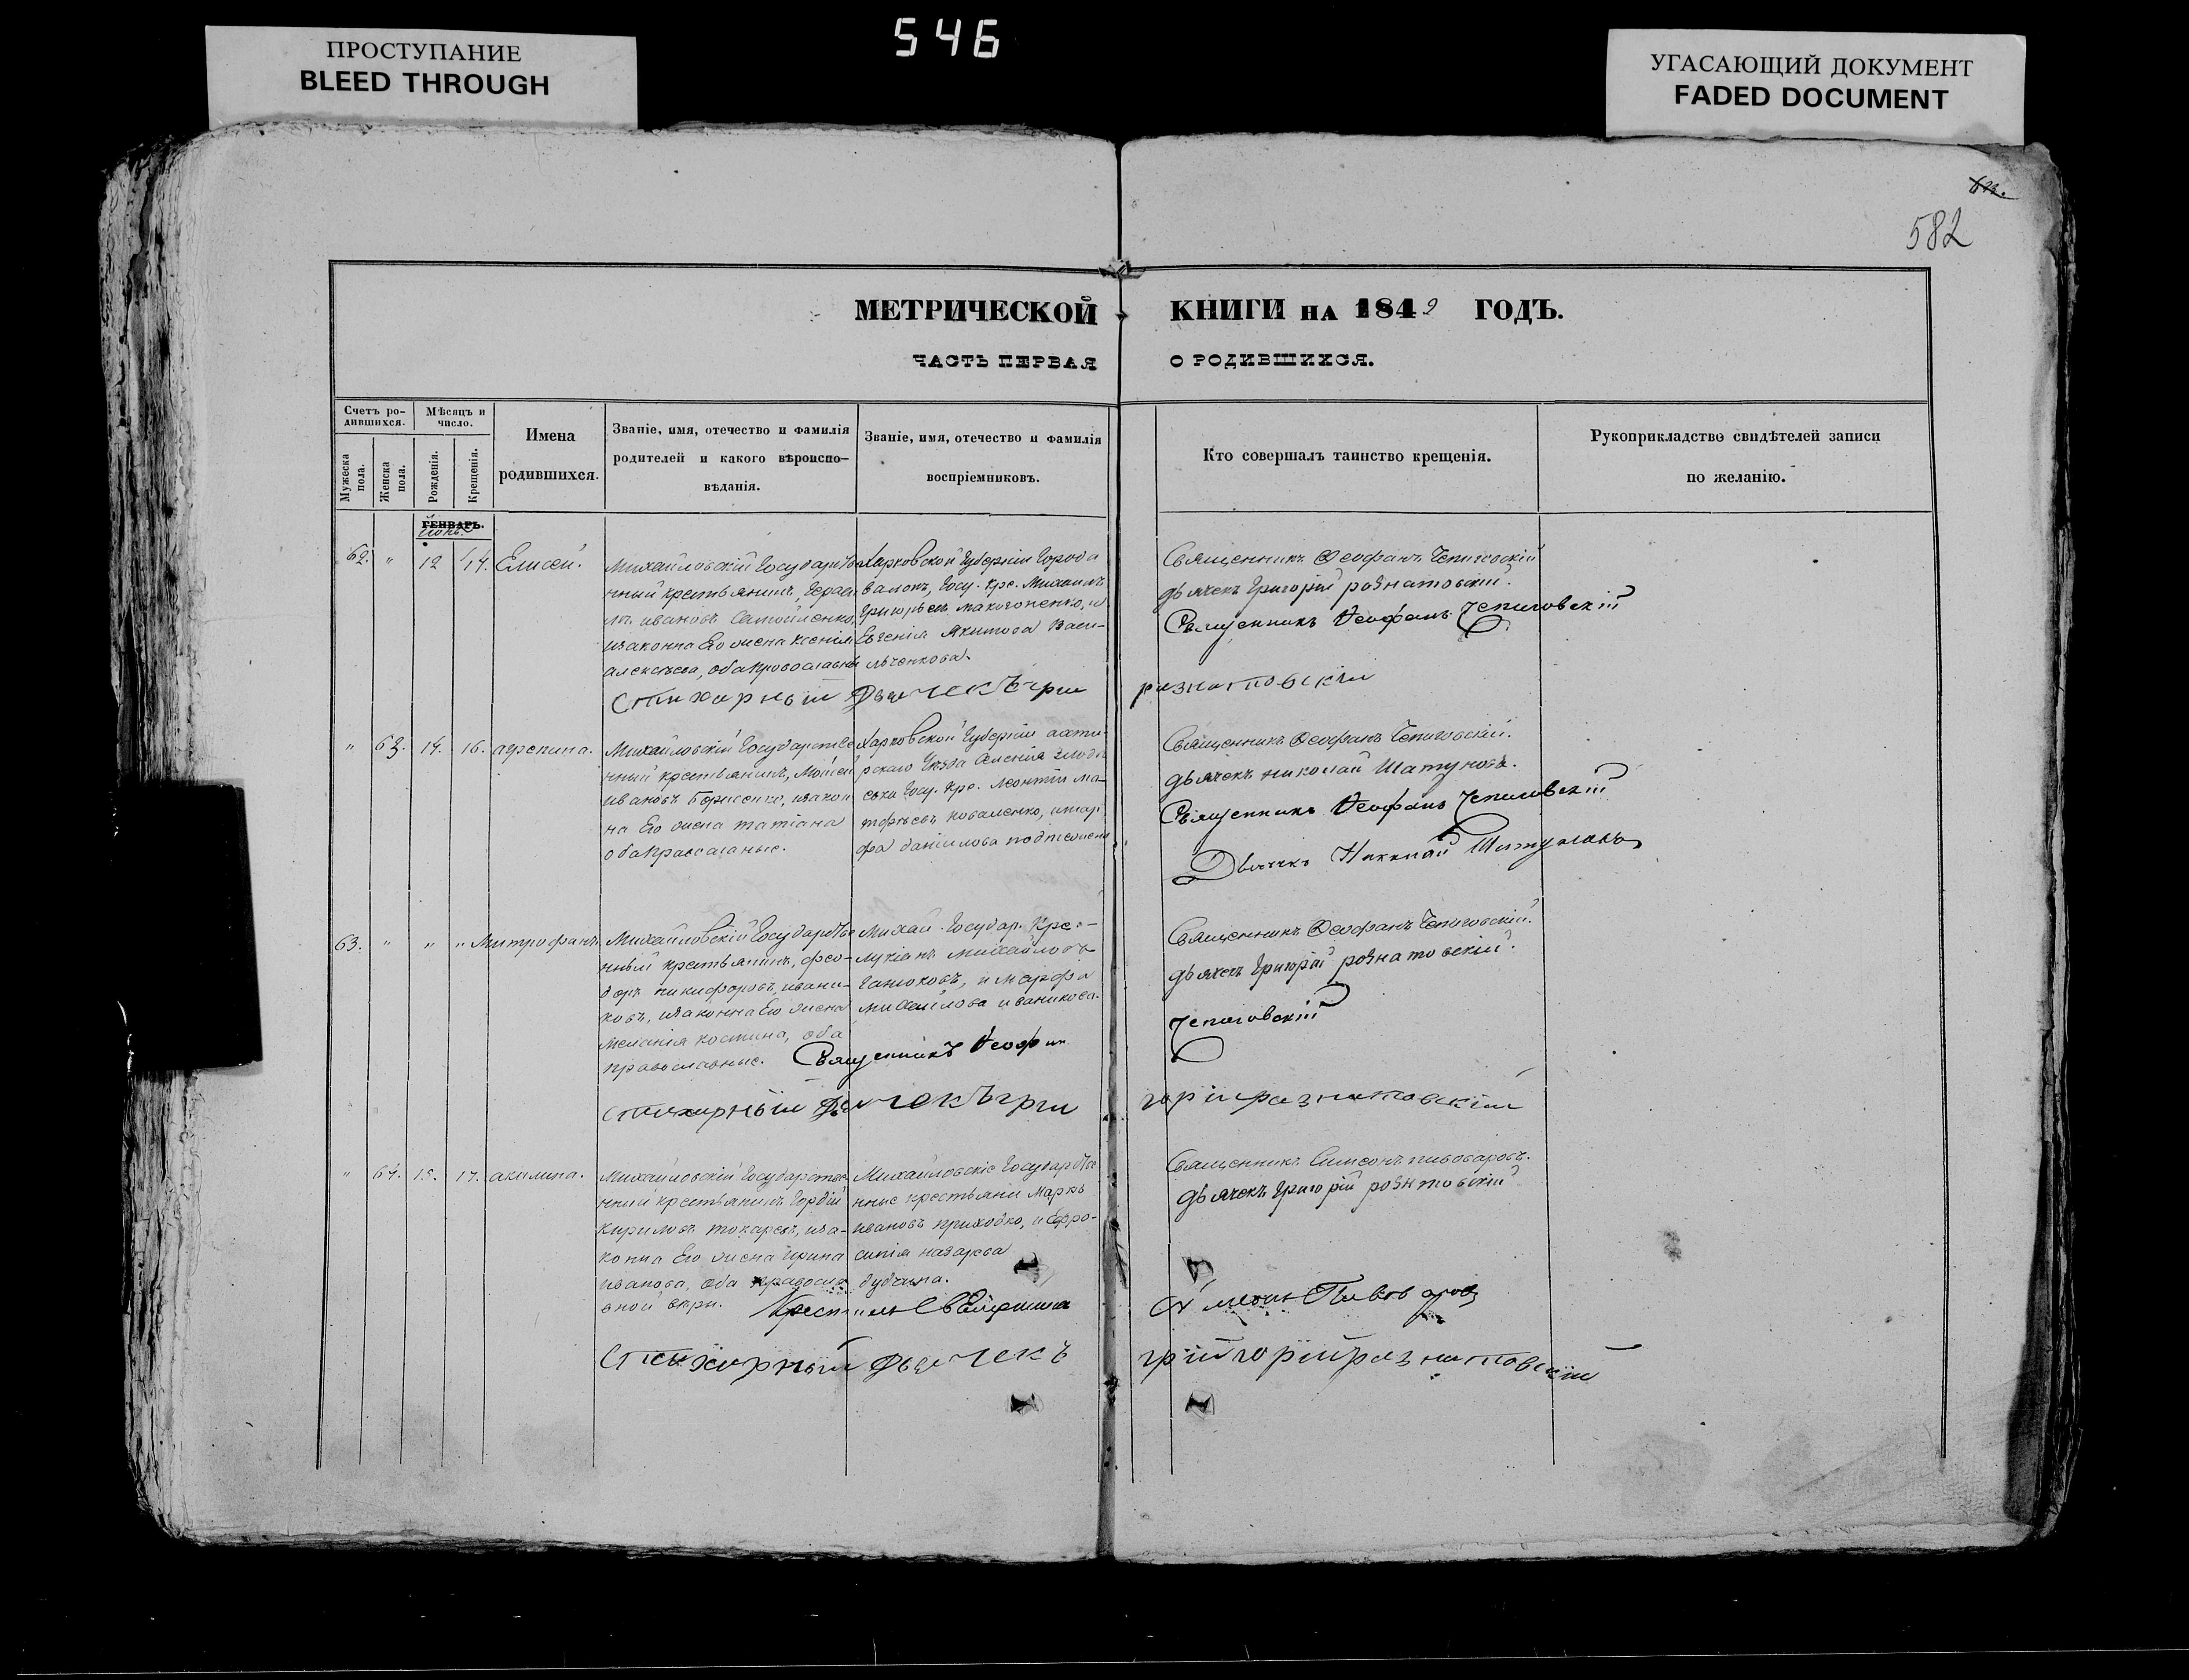 546
ПРОСТУПАНИЕ
BLEED THROUGH
УГАСАЮЩИЙ ДОКУМЕНТ
FADED DOCUMENT
582
МЕТРИЧЕСКОЙ КНИГИ НА 1842 ГОДЪ.
ЧАСТЬ ПЕРВАЯ О РОДИВШИХСЯ.
Счетъ ро-
дившихся.
Мужеска пола.
Женска пола.
Мѣсяцъ и
число.
Рожденія.
Крещенія.
Имена
родившихся.
Званіе, имя, отечество и фамилія
родителей и какого вѣроиспо-
вѣданія.
Званіе, имя, отечество и фамилія
воспріемниковъ.
Кто совершалъ таинство крещенія.
Рукоприкладство свидѣтелей записи
по желанію.
ГЕНВАРЬ.
62. " 12 14. Елисей.
Михайловскій Государстве
нный крестьянинъ, Гераси
мъ ивановъ Самойленко,
изаконна Его жена Ксенія
алексѣева, оба православны
Харковской Губерніи Города
валокъ, Госу. Кре. Михаилъ
Григорьевъ Макогоненко, и
Евгенія Якимова Васи-
льченкова.
Священникъ Ѳеофанъ Чепиговскій
дьячекъ Григорій розматовскій.
Священникъ Ѳеофанъ Чепиговскій
Стихарный Дьячекъ гри розматовскій
" 63. 14. 16. агрепина.
Михайловскій Государстве
нный крестьянинъ, Моѵсей
ивановъ Борисенко, изакон
на Его жена татіана
оба православные.
Харковской Губерніи ахти-
рскаго Уезда
Госу. Кре. Леонтій Ма-
тфѣевъ коваленко, имар
фа даніилова
Священникъ Ѳеофанъ Чепиговскій.
дьячекъ николай Шатуновъ.
Священникъ Ѳеофанъ Чепиговскій
Дьячекъ Николай
63. " " " Митрофанъ.
Михайловскій Государстве
нный крестьянинъ, Фео-
доръ никифоровъ, ивани-
ковъ, изаконна Его жена
Меланія костина, оба
православные.
Михай. Государ. Кре.-
лукіанъ михайловъ
ганюковъ, и марфа
михайлова иваникова.
Священникъ Ѳеофанъ Чепиговскій.
дьячекъ Григорій розматовскій.
Священникъ Ѳеофанъ Чепиговскій
стихарный Дьячекъ григорій розматовскій
" 64. 15. 17. акилина.
Михайловскій Государстве
нный крестьянинъ Гордій
Кириловъ токаревъ, иза-
конна Его жена Ирина
иванова, оба правосла
вной вѣры.
Михайловскіе Государстве
нные крестьяни Маркъ
ивановъ приходко, и Ефро-
синія назарева
дубчина.
Священникъ Симеонъ пивоваровъ.
дьячекъ Григорій розматовскій
Крестилъ Священникъ Симеонъ Пивоваровъ
Стихарный Дьячекъ григорій розматовскій